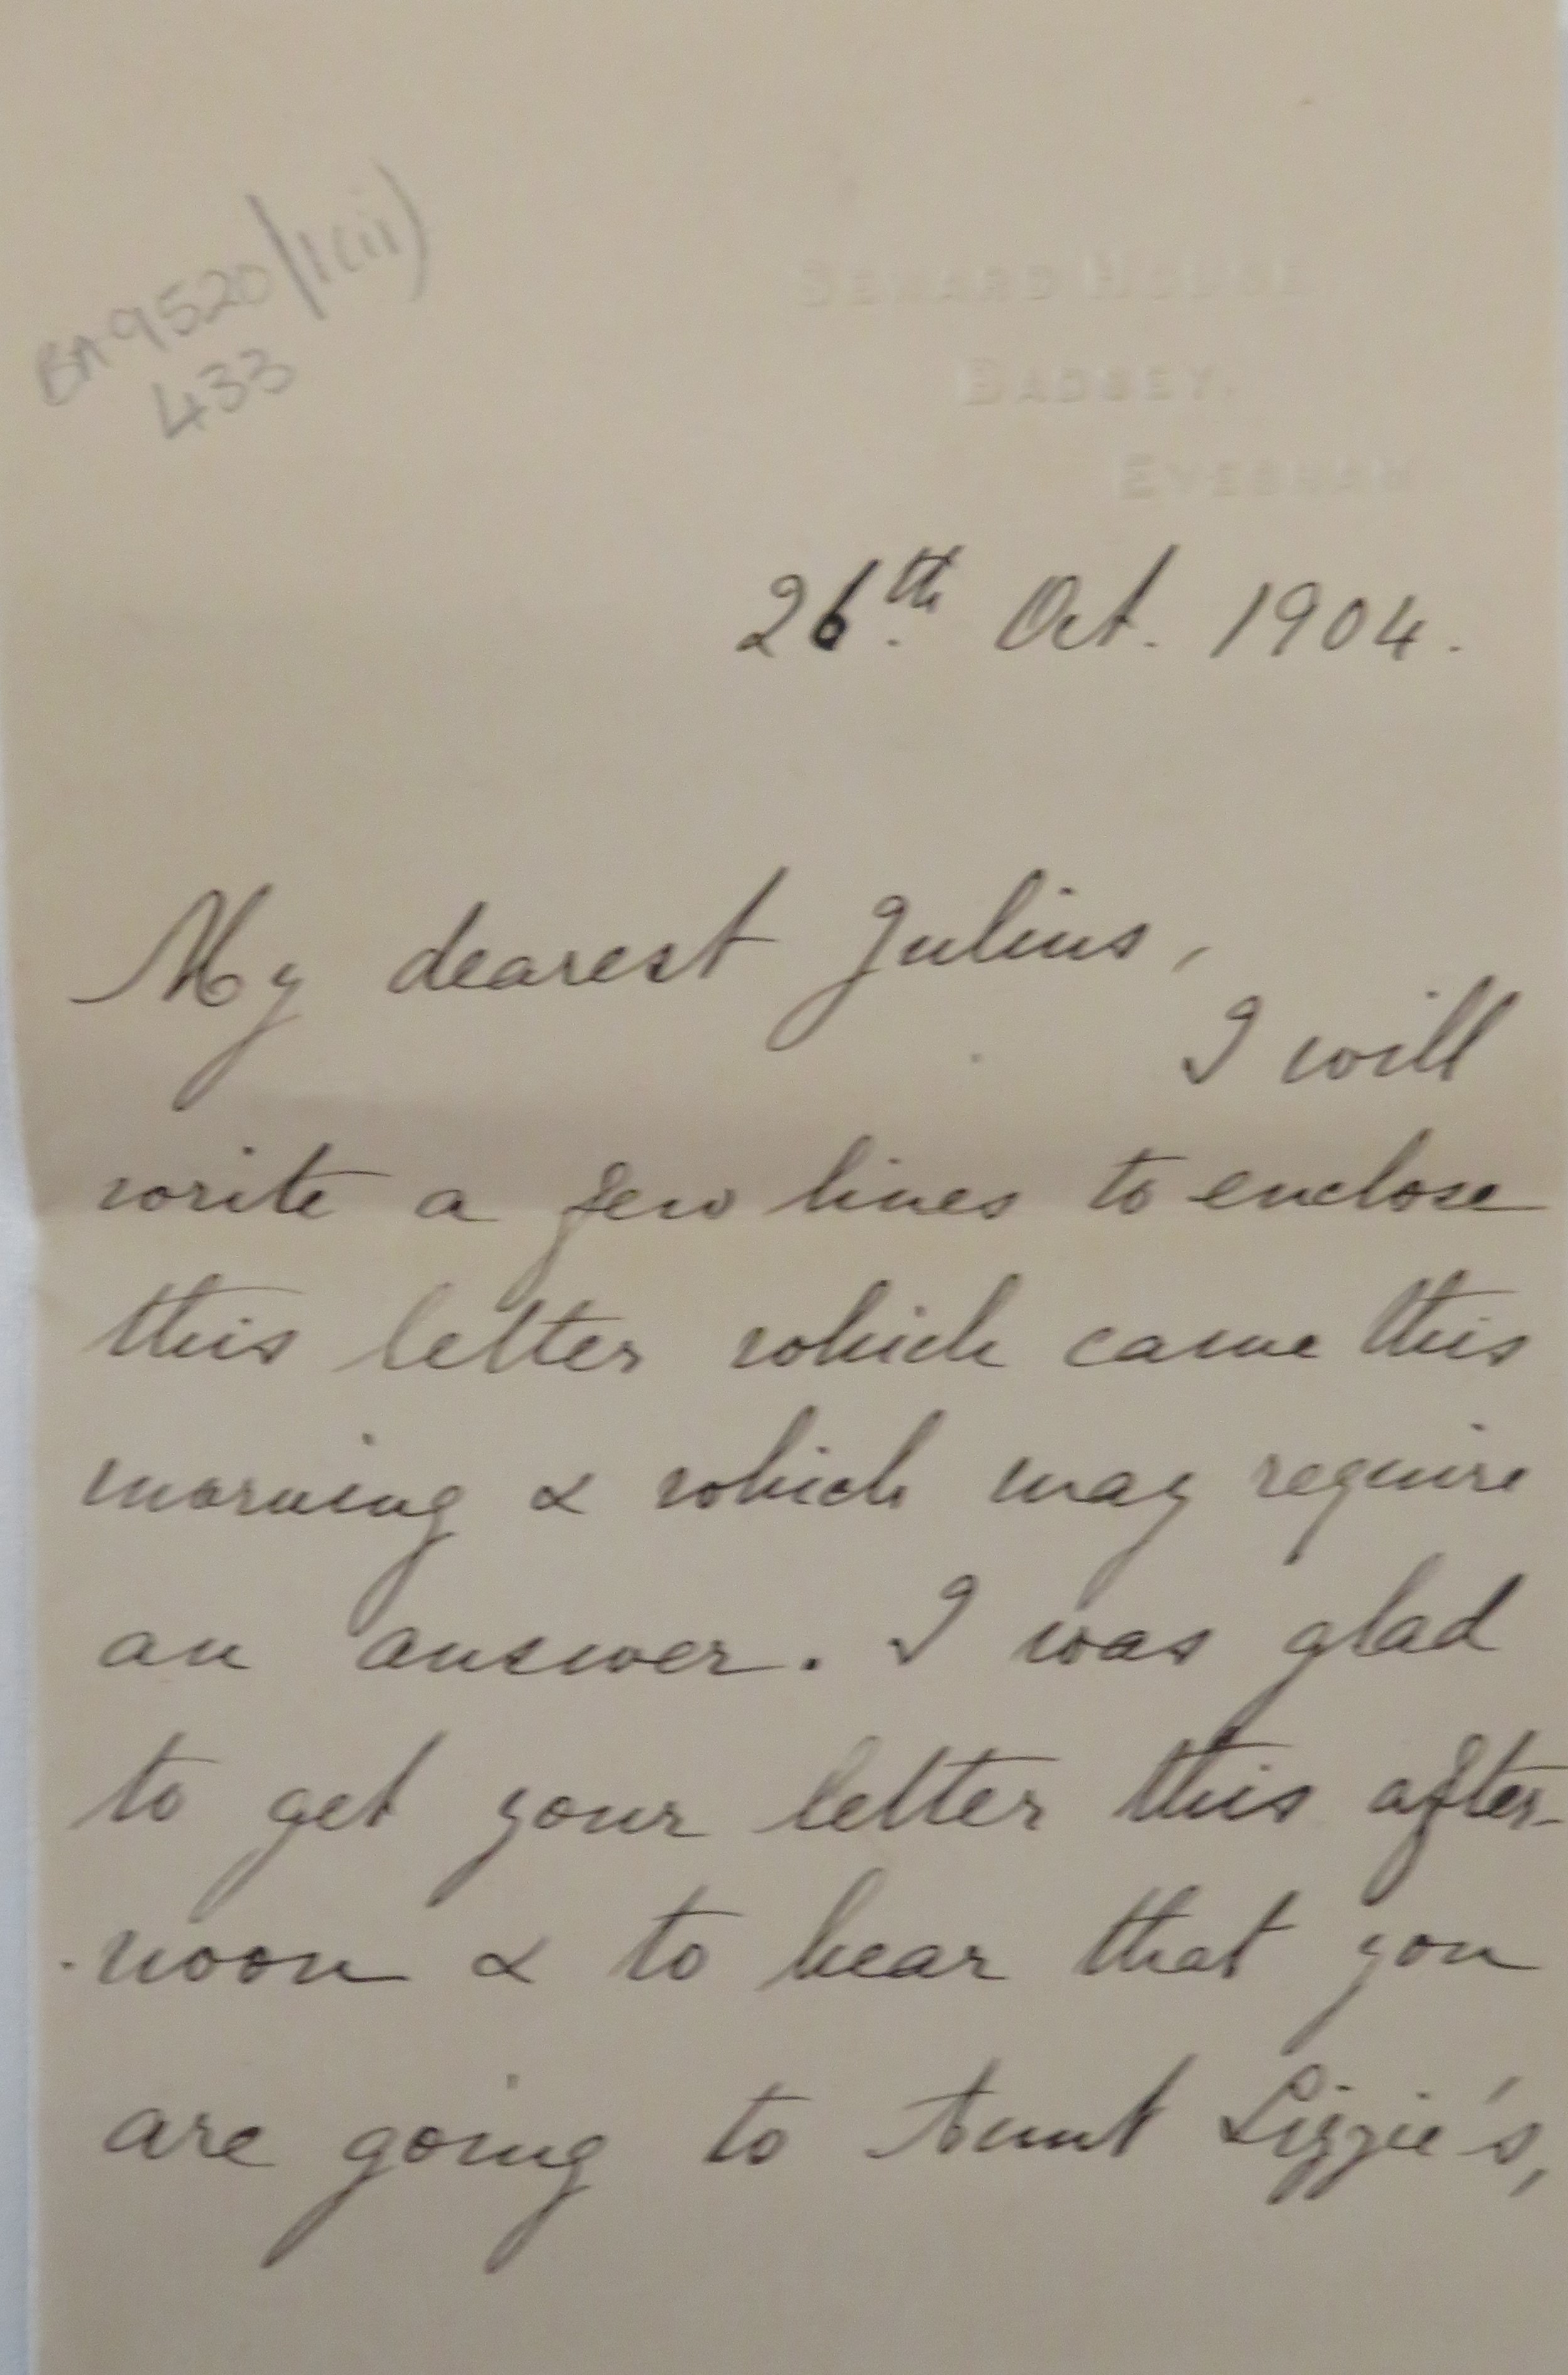 BA 9520/1(ii)
433
SEWARD HOUSE
BADSEY.
EVESHAM
26th. Oct. 1904.
My dearest Julius,
I will
write a few lines to enclose
this letter which came this
morning & which may require
an answer. I was glad
to get your letter this after-
-noon & to hear that you
are going to Aunt Lizzie's,